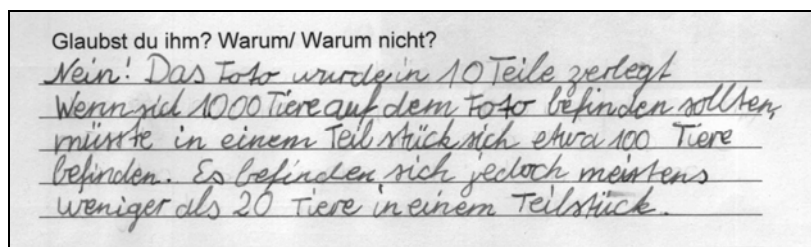 Glaubst du ihm? Warum/ Warum nicht?
Nein! Das Foto wurde in 10 Teile zerlegt
Wenn sich 1000 Tiere auf dem Foto befinden sollten,
müsste in einem Teilstück sich etwa 100 Tiere
befinden. Es befinden sich jedoch meistens
weniger als 20 Tiere in einem Teilstück.